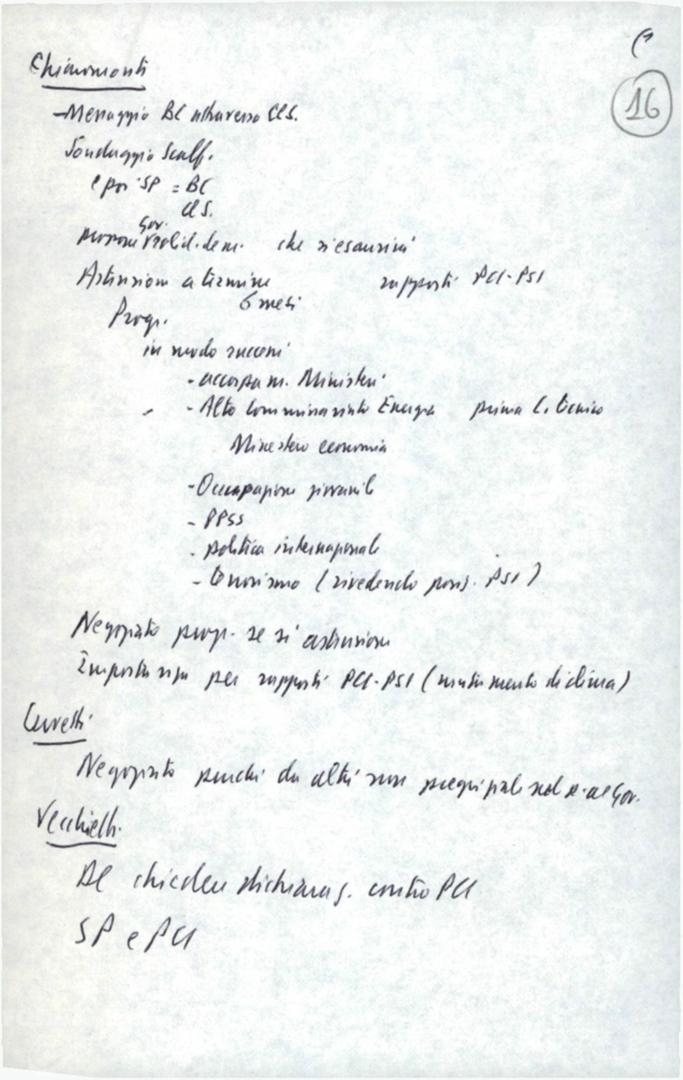 16
Chiaromonte
- Messaggio BC attraverso Cls.
Sondaggio Scalf.
e poi SP = BC
Cls.
Gov.
solid. dem. che si esaurirà
Astensione a termine rapporti PCI-PSI
6 mesi
Progr.
in modo
- accorpam. Ministeri
- Alto Commissariato Energia prima C.
Ministero economia
- Occupazione giovanile
- PPSS
- politica internazionale
- Terrorismo (rivedendo posiz. PSI)
Negoziato progr. se si astensione
Importanza per rapporti PCI-PSI (mutamento di clima)
Cervetti
Negoziato perché da altri non
Vecchietti
chiedere dichiaraz. contro PCI
SP e PCI